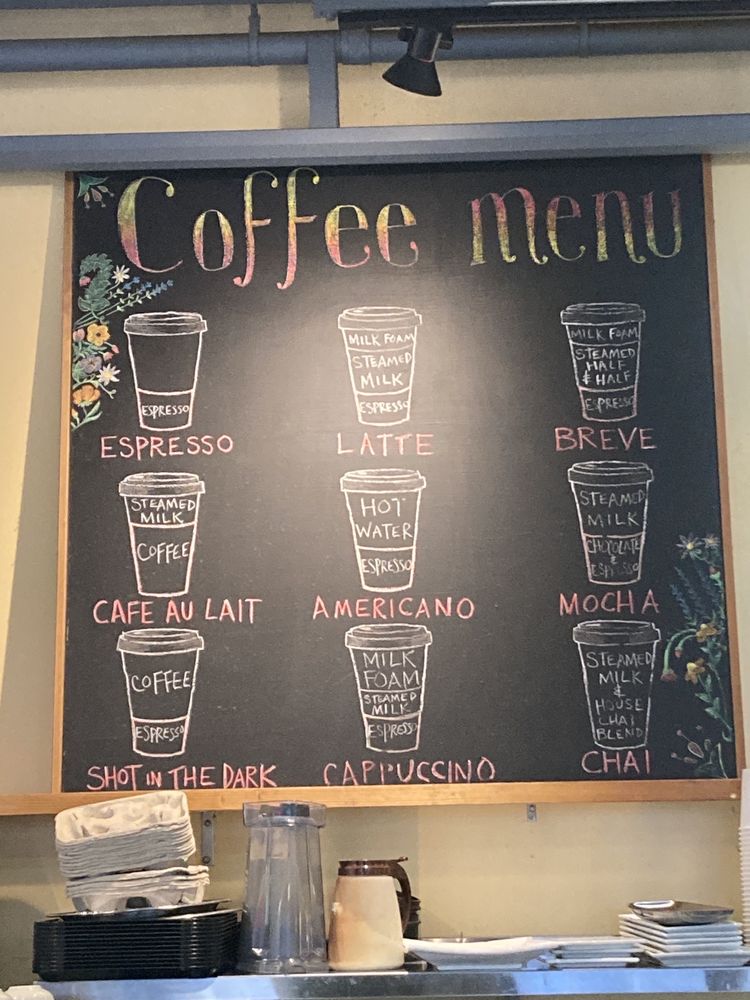 Coffee menu
ESPRESSO
ESPRESSO
MILK FOAM
STEAMED
MILK
ESPRESSO
LATTE
MILK FOAM
STEAMED
HALF
& HALF
ESPRESSO
BREVE
STEAMED
MILK
COFFEE
CAFE AU LAIT
HOT
WATER
ESPRESSO
AMERICANO
STEAMED
MILK
CHOCOLATE
&
ESPRESSO
MOCHA
COFFEE
ESPRESSO
SHOT IN THE DARK
MILK
FOAM
STEAMED
MILK
ESPRESSO
CAPPUCCINO
STEAMED
MILK
&
HOUSE
CHAI
BLEND
CHAI